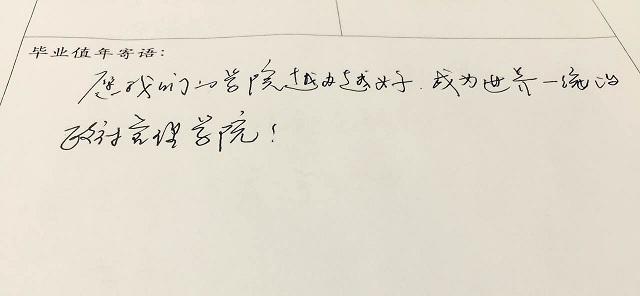 毕业值年寄语:
愿我们的学院越办越好.成为世界一流的
政府管理学院!